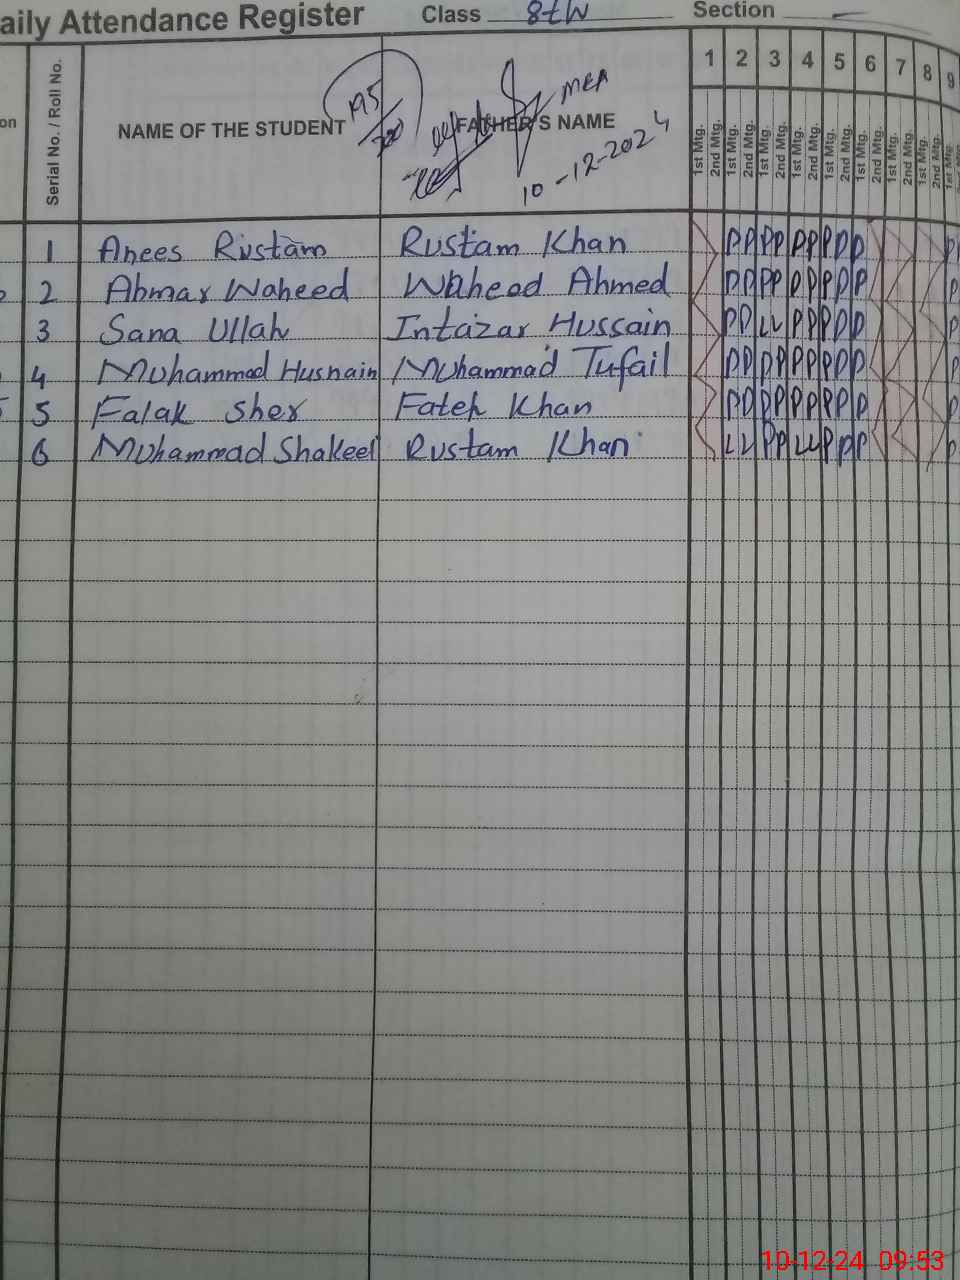 aily Attendance Register Class 8th Section
on Serial No. / Roll No. NAME OF THE STUDENT 195 FATHER'S NAME MEA 10-12-2024
1 2 3 4 5 6 7 8 9
1st Mtg. 2nd Mtg. 1st Mtg. 2nd Mtg. 1st Mtg. 2nd Mtg. 1st Mtg. 2nd Mtg. 1st Mtg. 2nd Mtg. 1st Mtg. 2nd Mtg. 1st Mtg. 2nd Mtg. 1st Mtg. 2nd Mtg. 1st Mtg.
1 Anees Rustam Rustam Khan P P P P P P P P P
2 Abmar Waheed Waheed Ahmed P P P P P P P P P
3 Sana Ullah Intazar Hussain P P L L P P P P P
4 Muhammad Husnain Muhammad Tufail P P P P P P P P P
5 Falak Sher Fateh Khan P P P P P P P P P
6 Muhammad Shakeel Rustam Khan L L P P L L P P P
10-12-24 09:53